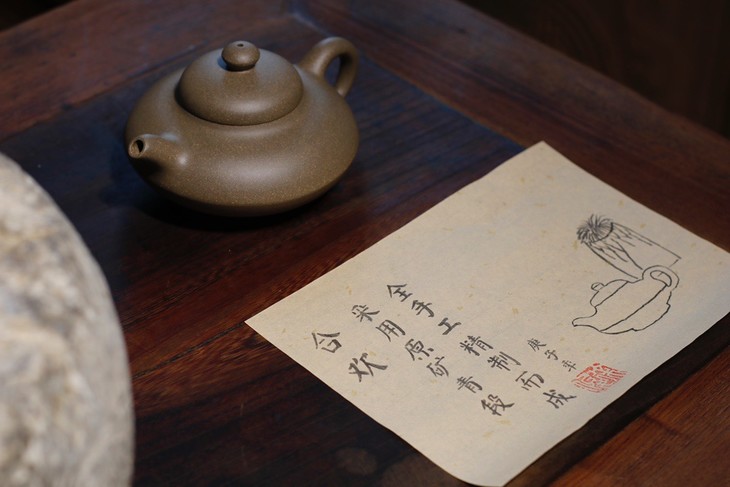 合欢
采用原矿青段
全手工精制而成
庚子年